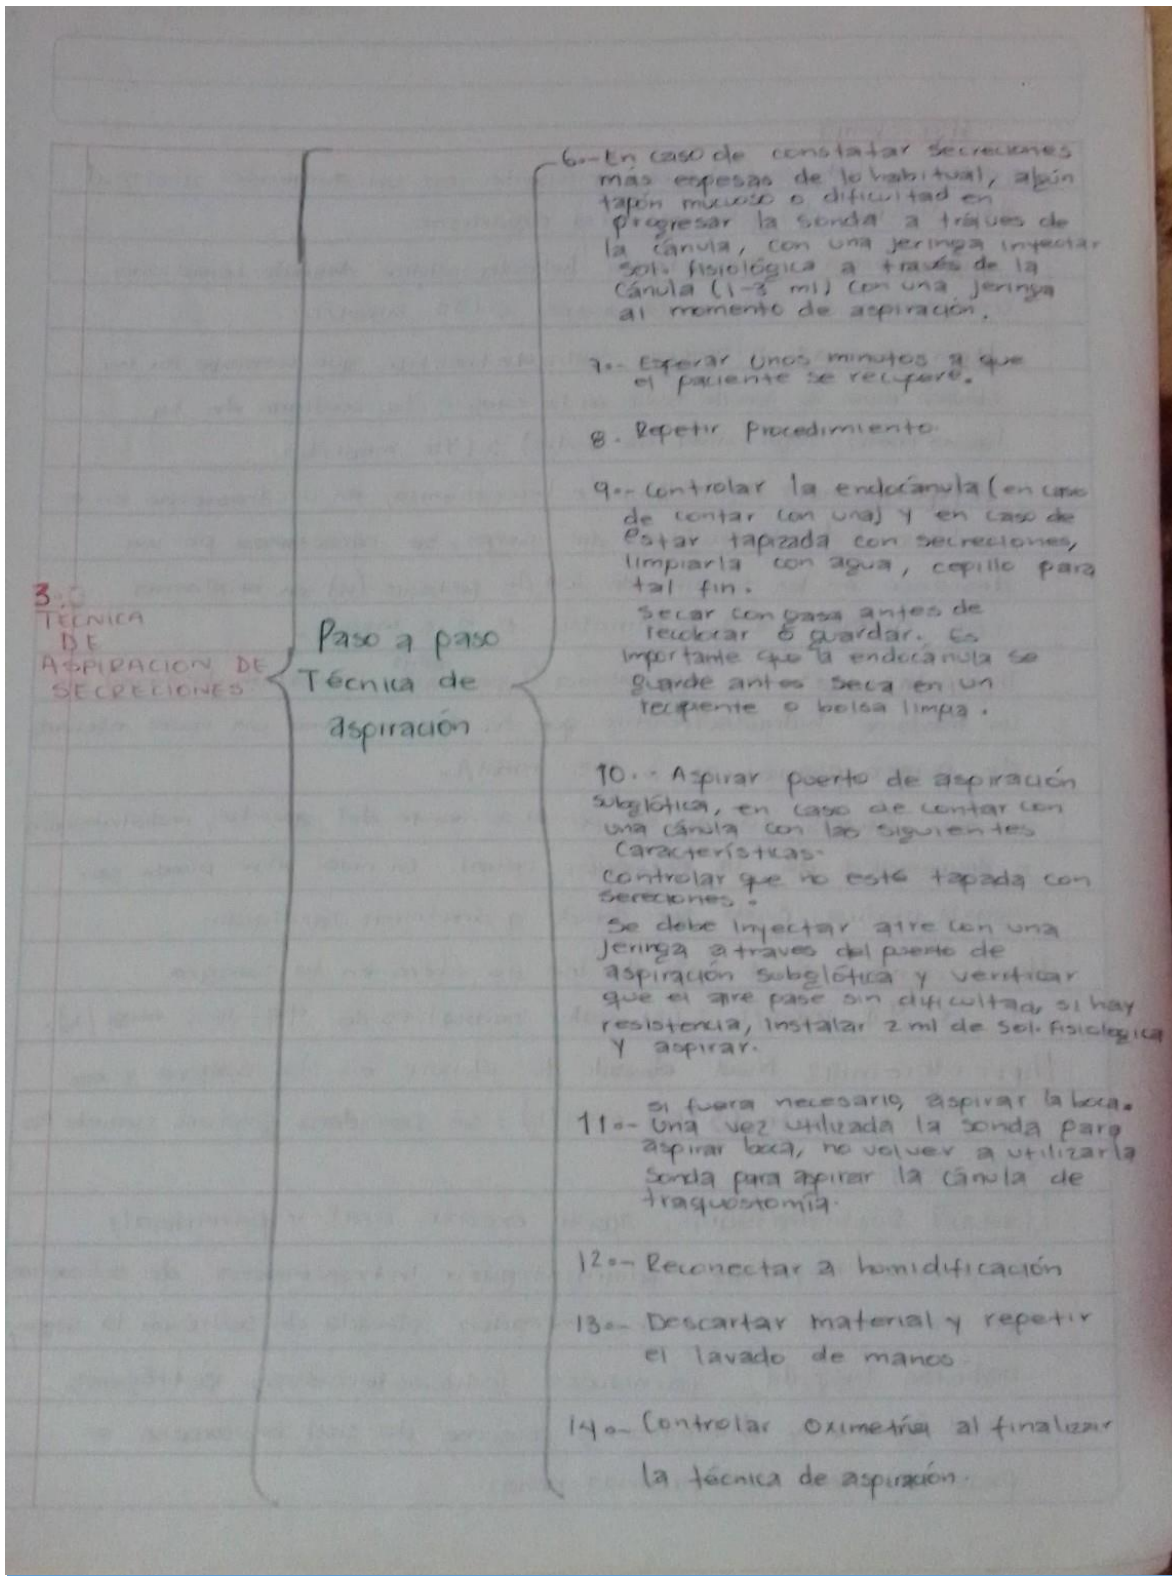 3.
TECNICA
DE
ASPIRACION DE
SECRECIONES
Paso a paso
Técnica de
aspiración
6.- En caso de constatar secreciones
más espesas de lo habitual, algún
tapón mucoso o dificultad en
progresar la sonda a tráves de
la cánula, con una jeringa inyectar
sol. fisiológica a través de la
cánula (1-3 ml) con una jeringa
al momento de aspiración.
7.- Esperar unos minutos a que
el paciente se recupere.
8. Repetir Procedimiento.
9.- Controlar la endocánula (en caso
de contar con una) y en caso de
estar tapizada con secreciones,
limpiarla con agua, cepillo para
tal fin.
Secar con gasa antes de
recolocar ó guardar. Es
importante que la endocánula se
guarde antes seca en un
recipiente o bolsa limpia.
10.- Aspirar puerto de aspiración
subglótica, en caso de contar con
una cánula con las siguientes
características.
Controlar que no esté tapada con
sereciones.
Se debe inyectar aire con una
jeringa a traves del puerto de
aspiración subglótica y verificar
que el aire pase sin dificultad, si hay
resistencia, instalar 2 ml de sol. Fisiologica
y aspirar.
si fuera necesario, aspirar la boca.
11.- Una vez utilizada la sonda para
aspirar boca, no volver a utilizar la
sonda para aspirar la cánula de
traquostomía.
12.- Reconectar a homidificación
13.- Descartar material y repetir
el lavado de manos.
14.- Controlar oximetría al finalizar
la técnica de aspiración.